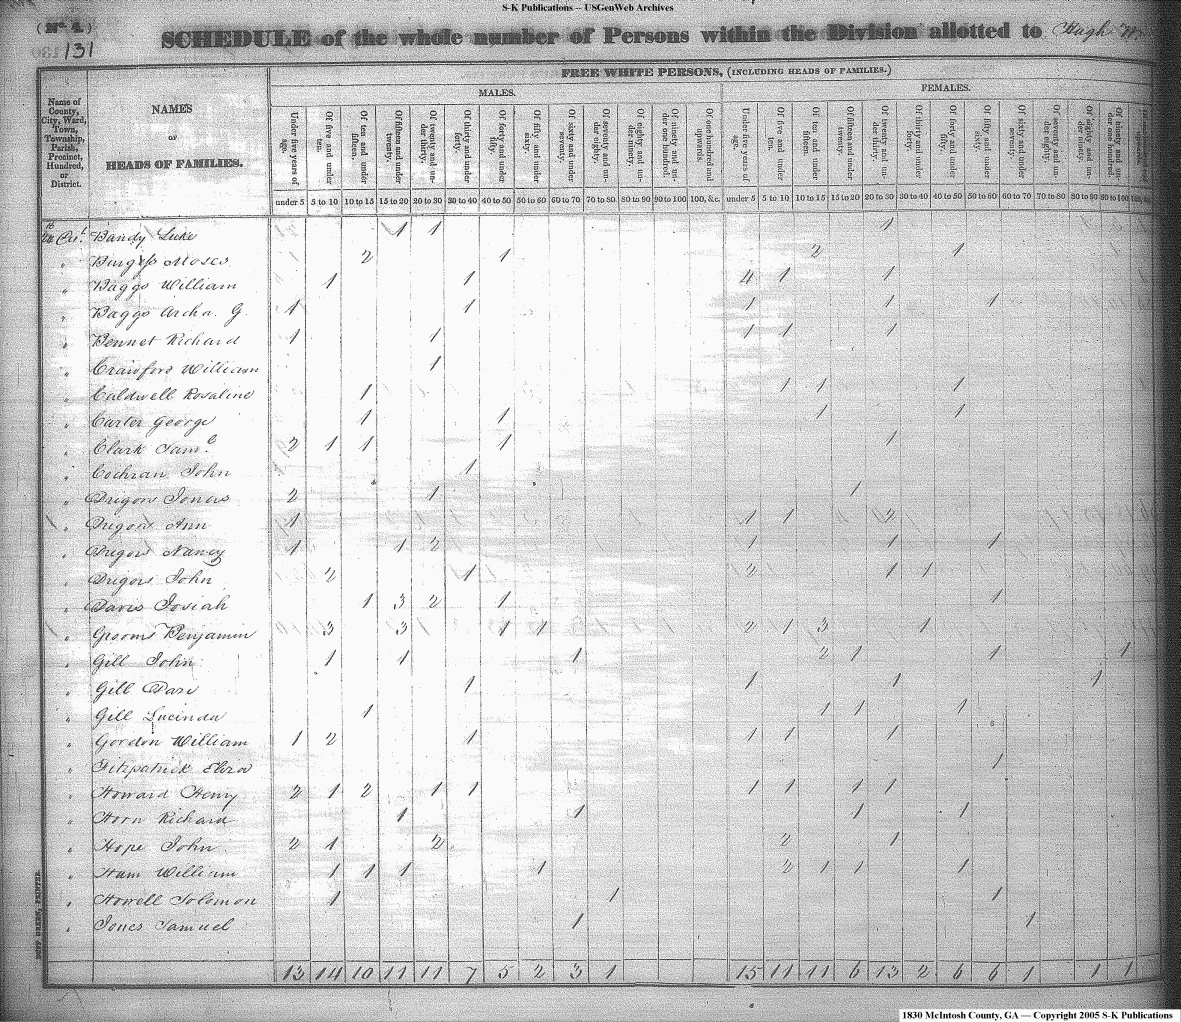 S-K Publications -- USGenWeb Archives
(No. 4.)
131
SCHEDULE of the whole number of Persons within the Division allotted to Hugh
FREE WHITE PERSONS, (INCLUDING HEADS OF FAMILIES.)
MALES. FEMALES.
Name of County, City, Ward, Town, Township, Parish, Precinct, Hundred, or District.
NAMES
OF
HEADS OF FAMILIES.
Under five years of age. Of five and under ten. Of ten and under fifteen. Of fifteen and under twenty. Of twenty and under thirty. Of thirty and under forty. Of forty and under fifty. Of fifty and under sixty. Of sixty and under seventy. Of seventy and under eighty. Of eighty and under ninety. Of ninety and under one hundred. Of one hundred and upwards. Under five years of age. Of five and under ten. Of ten and under fifteen. Of fifteen and under twenty. Of twenty and under thirty. Of thirty and under forty. Of forty and under fifty. Of fifty and under sixty. Of sixty and under seventy. Of seventy and under eighty. Of eighty and under ninety. Of ninety and under one hundred.
under 5 5 to 10 10 to 15 15 to 20 20 to 30 30 to 40 40 to 50 50 to 60 60 to 70 70 to 80 80 to 90 90 to 100 100, &c. under 5 5 to 10 10 to 15 15 to 20 20 to 30 30 to 40 40 to 50 50 to 60 60 to 70 70 to 80 80 to 90 90 to 100
Bandy Luke 1 1 1
Burgess Moses 2 1 2 1
" Baggs William 1 1 4 1 1
" Baggs Archa. G. 1 1 1 1 1
" Bennet Richard 1 1 1 1 1
" Crawford William 1
" Caldwell Rosaline 1 1 1 1
" Carter George 1 1 1 1
" Clark Saml 2 1 1 1 1
" Cochran John 1
" Drigors Jonas 2 1 1
" Drigors Ann 1 1 1 2
" Drigors Nancy 1 1 2 1 1 1
" Drigors John 2 1 2 1 1
" Davis Josiah 1 3 2 1 1
" Grooms Benjamin 3 3 1 1 2 1 3 1
" Gill John 1 1 1 2 1 1 1
" Gill 1 1 1 1
" Gill Lucinda 1 1 1 1
" Gordon William 1 2 1 1 1 1
" Fitzpatrick Eliza 1
" Howard Henry 2 1 2 1 1 1 1 1 1
" Horn Richard 1 1 1 1
" Hope John 2 1 2 2 1
" Ham William 1 1 1 1 2 1 1 1
" Howell Solomon 1 1 1
" Jones Samuel 1 1
13 14 10 11 11 7 5 2 3 1 15 11 11 6 13 2 6 6 1 1 1
DUFF GREEN, PRINTER.
1830 McIntosh County, GA — Copyright 2005 S-K Publications